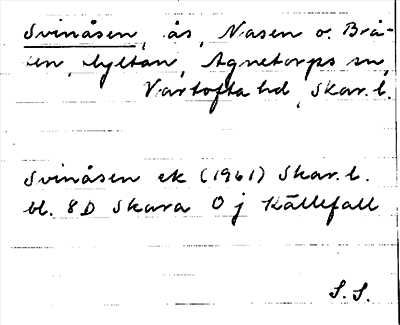 Svinåsen, ås, Nasen o. Brå-
ten, lyltan, Agnetorps sn,
Vartofta hd, Skar. l.
Svinåsen ek (1961) Skar. l.
bl. 8D Skara 0 j Källefall
S. S.